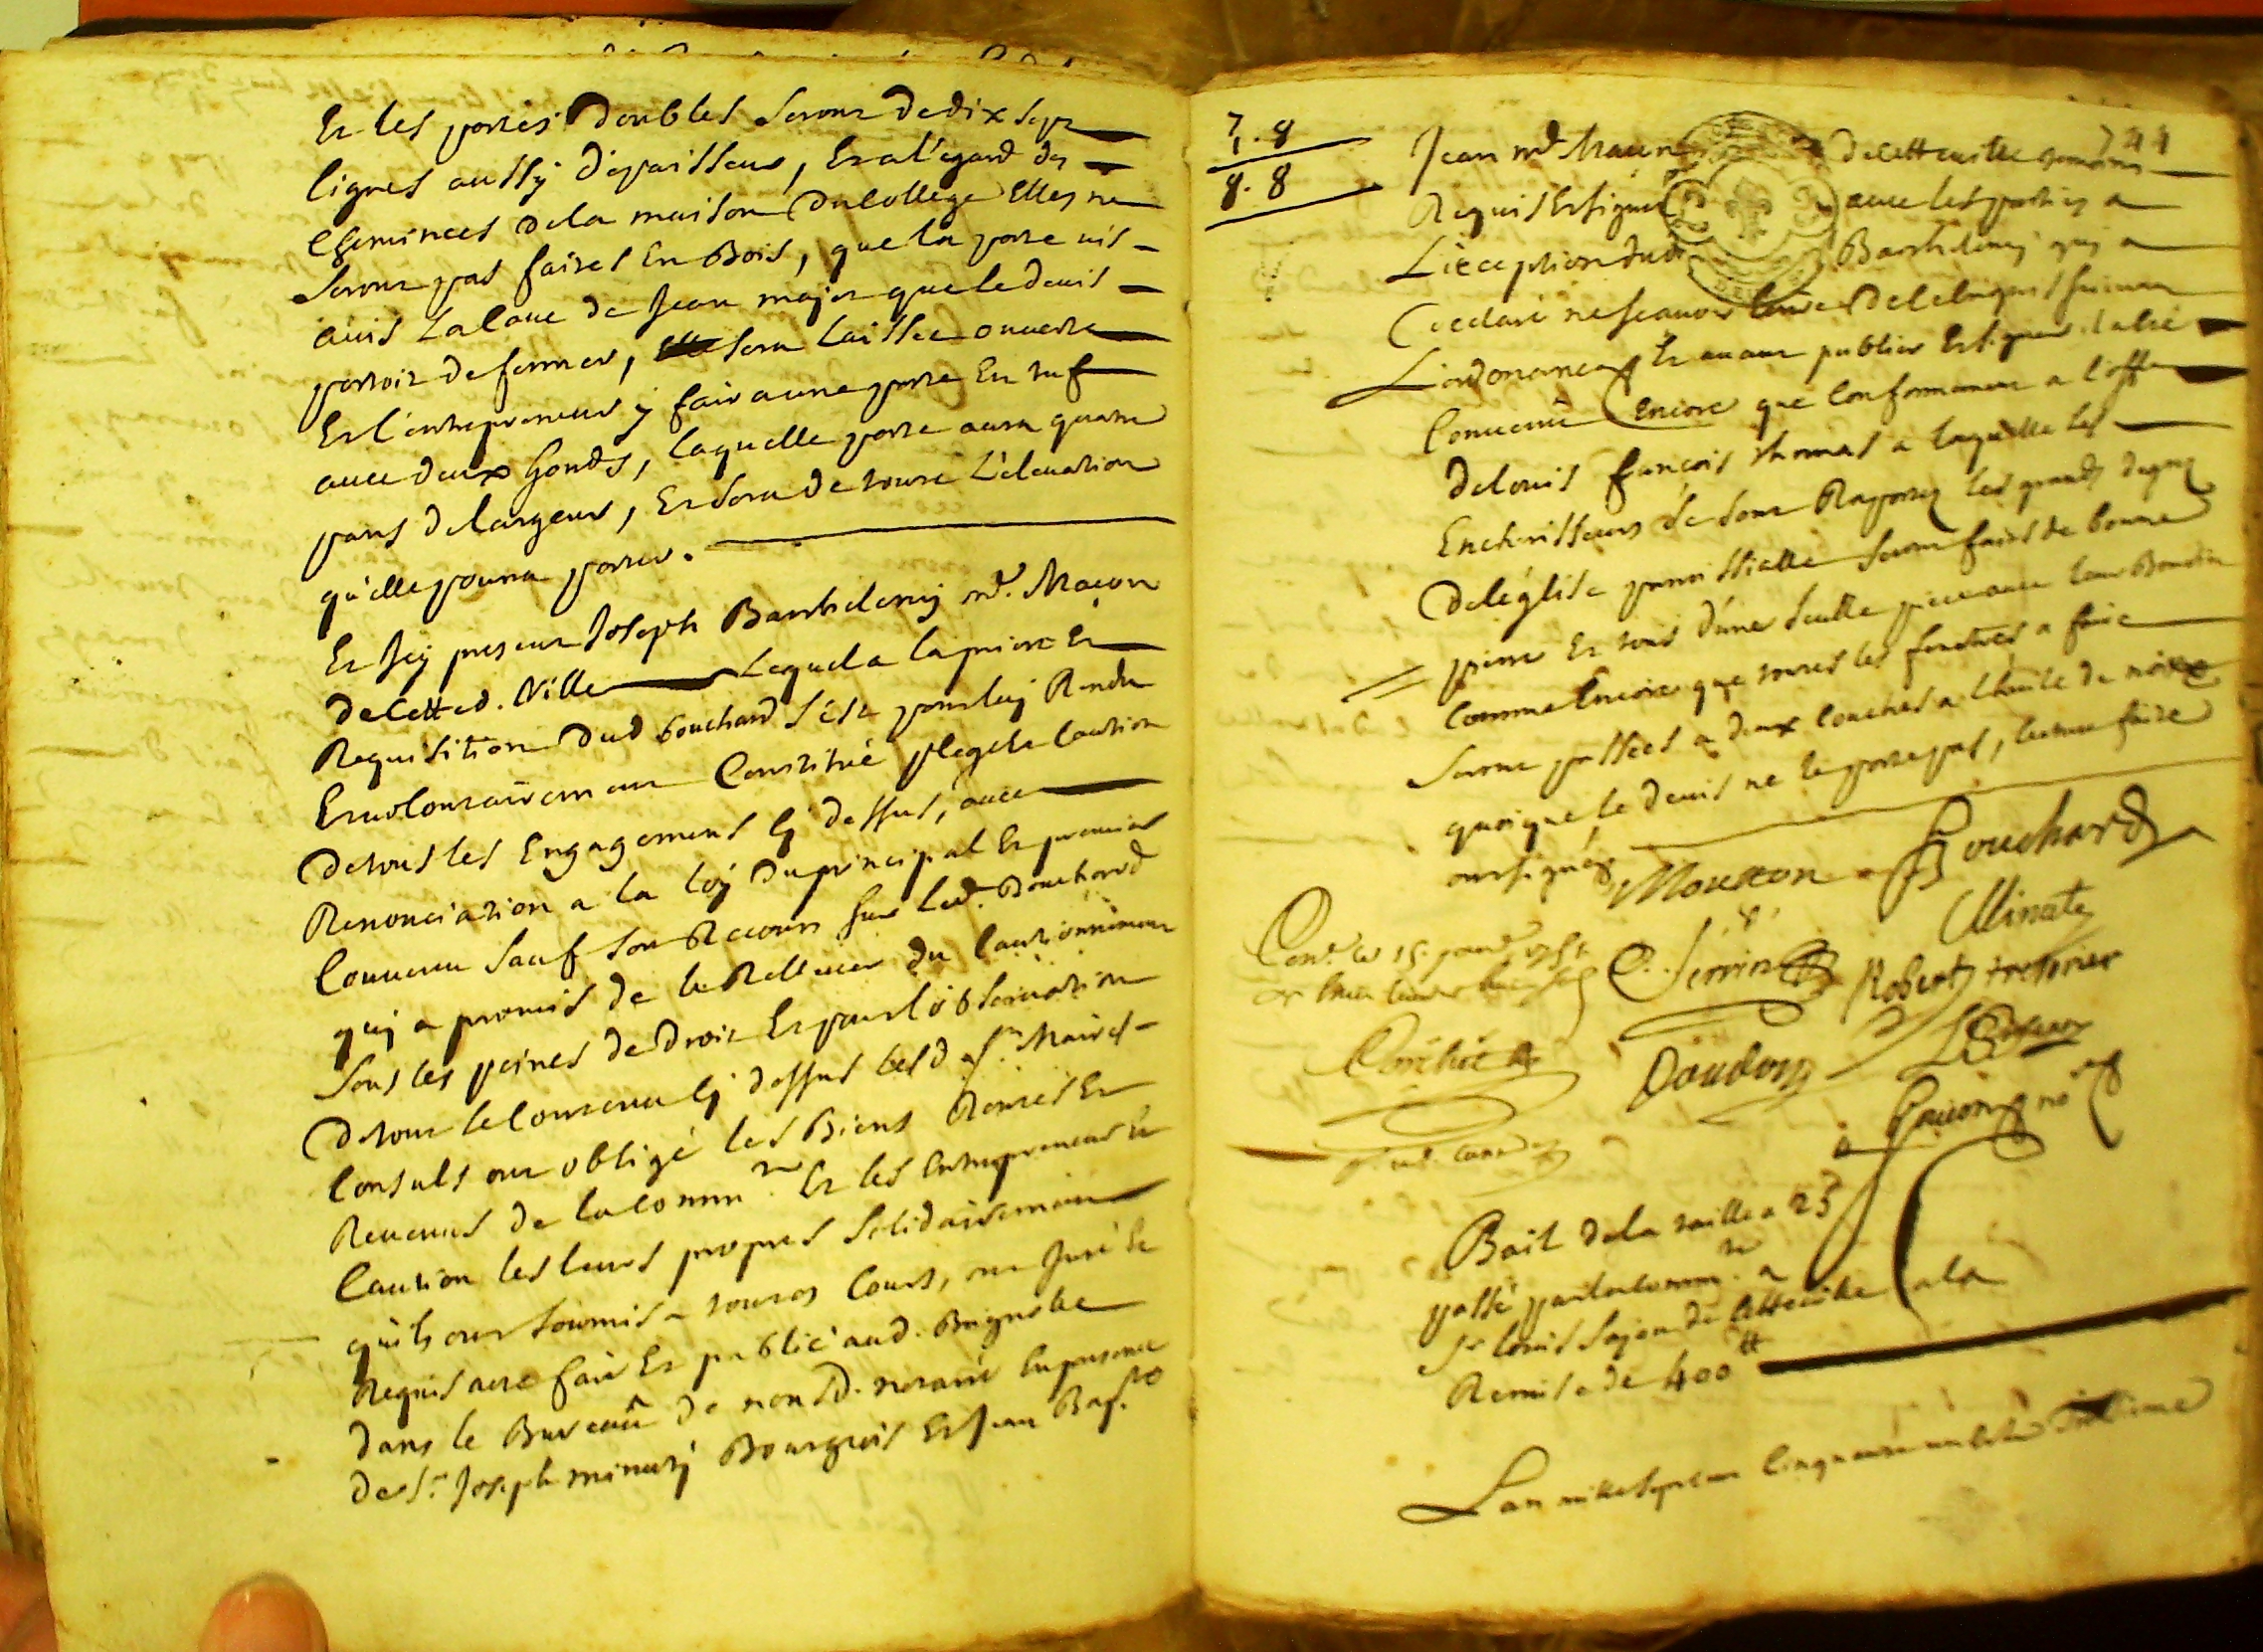 Et les portes doubles seront de dix sept
lignes aussy d'epaisseur, Et a l'egard des
cheminées de la maison du College Elles ne
seront pas faites En Bois, que la porte vis
avis La Cave de Jean major que le devis
portoit de fermer, sera Laissée ouverte
Et l'entrepreneur y faira une porte En tuf
avec deux Gonds, laquelle porte aura quatre
pans de largeur, Et sera de toute L'elevation
qu'elle pourra porter.
Et Icy present Joseph Barthelemy md. Macon
de Cette d. Ville Lequel a la priere Et
Requisition dud Bouchard s'est pour luy Rendu
Et volontairement Constitué plege et caution
de tous les Engagemens cy dessus, avec
Renonciation a la loy du principal Et premier
Convenu sauf son Recours sur Led. Bouchard
quy a promis de le Rellever du Cautionnement
sous les peines de droit Et pour l'observation
de tout le Contenu cy dessus lesd srs Maires
Consuls ont obligé les Biens Rentes Et
Revenus de la Commté. Et les Entrepreneur Et
Caution les leurs propres solidairement
qu'ils ont soumis a toutes Cours, ont Juré Et
Requis acte fait Et publié aud. Baignolle
dans le Bureau de nousd. notaire En presence
de Sr. Joseph minuty Bourgeois Et Jean Bapte
7. 8
8. 8
744
Jean md. Macon de Cette ville temoins
Requis Et signés avec les parties a
L'exception dud Barthelemy quy a
declaré ne scavoir Ecrire de Ce Enquis suivant
L'ordonance Et avant publier Et signer a été
Convenu Encore que Conformement a l'offre
de Louis françois thomas a laquelle les
Encherisseurs se sont Raportés les grands degrés
de l'église parroissialle seront faits de bonne
pierre Et tous d'une seulle piece avec leur Boudin
Comme Encore que toutes les fenetres a faire
seront passées a deux couches a l'huile de noix
quoique le devis ne le porte pas, Comme faire
ont signés
Mouton Bouchard
Minuty
Con.lé le 15. janv. 1751
C. Serrin Robert tresorier
Doudon
Bail de la taille a 23
passé par la Commté. a
Sr Louis Sajou de Cette ville a la
Remise de 400 ₶
L'an mille sept cens Cinquante un Et le